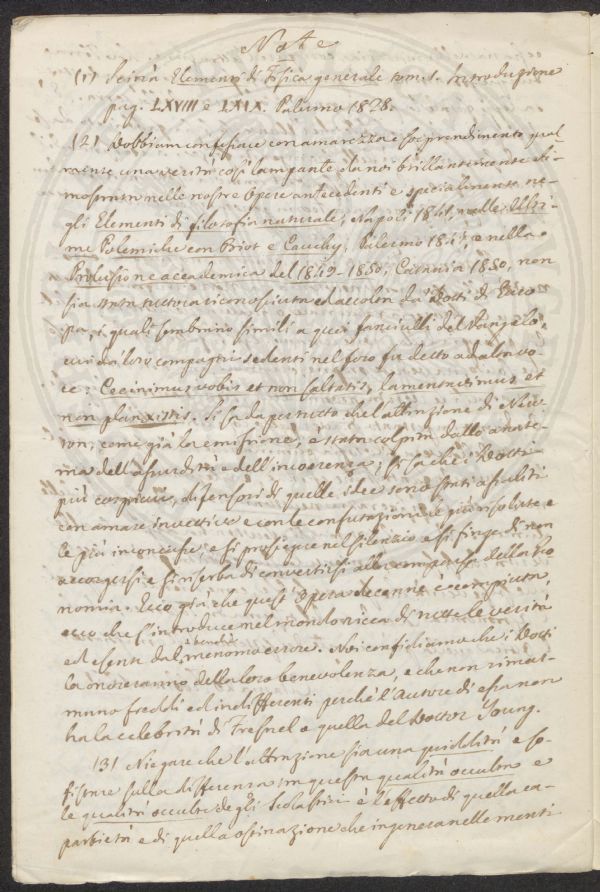 Note
(1) Scinà Elementi di Fisica generale tom. 1. Introduzione
pag. LXVIII e LXIX. Palermo 1828.
(2) Dobbiam confessare con amarezza e sorprendimento qual
mente una verità così lampante da noi brillantemente di-
mostrata nelle nostre Opere antecedenti e specialmente ne-
gli Elementi di filosofia naturale, Napoli 1841, nelle Ulti-
me Polemiche con Biot e Cauchy, Palermo 1844, e nella
Prolusione accademica del 1849-1850, Catania 1850, non
sia stata tuttora riconosciuta ed accolta da' Dotti di Euro
pa, i quali sembrano simili a quei fanciulli del Vangelo,
cui da' loro compagni sedenti nel foro fu detto ad alta vo-
ce: Cecinimus vobis et non saltastis, lamentavimus et
non planxistis. Si sa da per tutto che l'attrazione di New
ton, come già la emissione, è stata colpita dallo anate-
ma dell'assurdità e dell'incoerenza; si sa che i Dotti
più cospicui, difensori di quelle idee sono stati assaliti
con amare invettive e con le confutazioni le più risolute e
le più inconcusse; e si prosegue nel silenzio e si finge di non
accorgersi e si riserba di convertirsi alla comparsa della Pio
nomia. Ecco già che quest'Opera decenne è compiuta,
ecco che s'introduce nel mondo ricca di tutte le verità
ed esente dal benchè menomo errore. Noi confidiamo che i Dotti
la onoreranno della loro benevolenza, e che non rimar-
ranno freddi ed indifferenti perchè l'Autore di essa non
ha la celebrità di Fresnel o quella del Dottor Young.
(3) Niegare che l'attrazione sia una quiddità e so-
fisticare sulla differenza tra questa qualità occulta e
le qualità occulte degli Scolastici è l'effetto di quella ca-
parbietà e di quella ostinazione che ingenera nelle menti